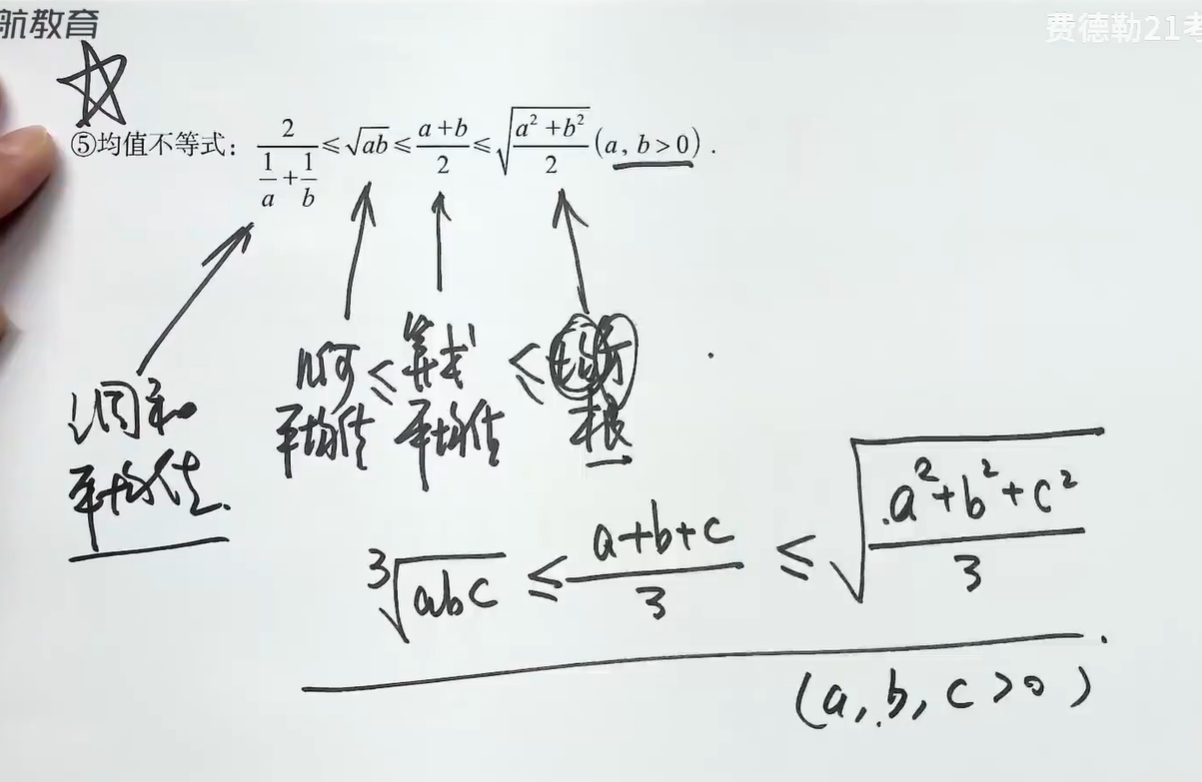 航教育
费德勒21考
⑤均值不等式: 2/(1/a+1/b) ≤ √ab ≤ (a+b)/2 ≤ √((a²+b²)/2) (a, b>0) .
几何 ≤ 算术 ≤ 均方
平均值 平均值 根
调和
平均值.
³√abc ≤ (a+b+c)/3 ≤ √((a²+b²+c²)/3)
(a, b, c >0)